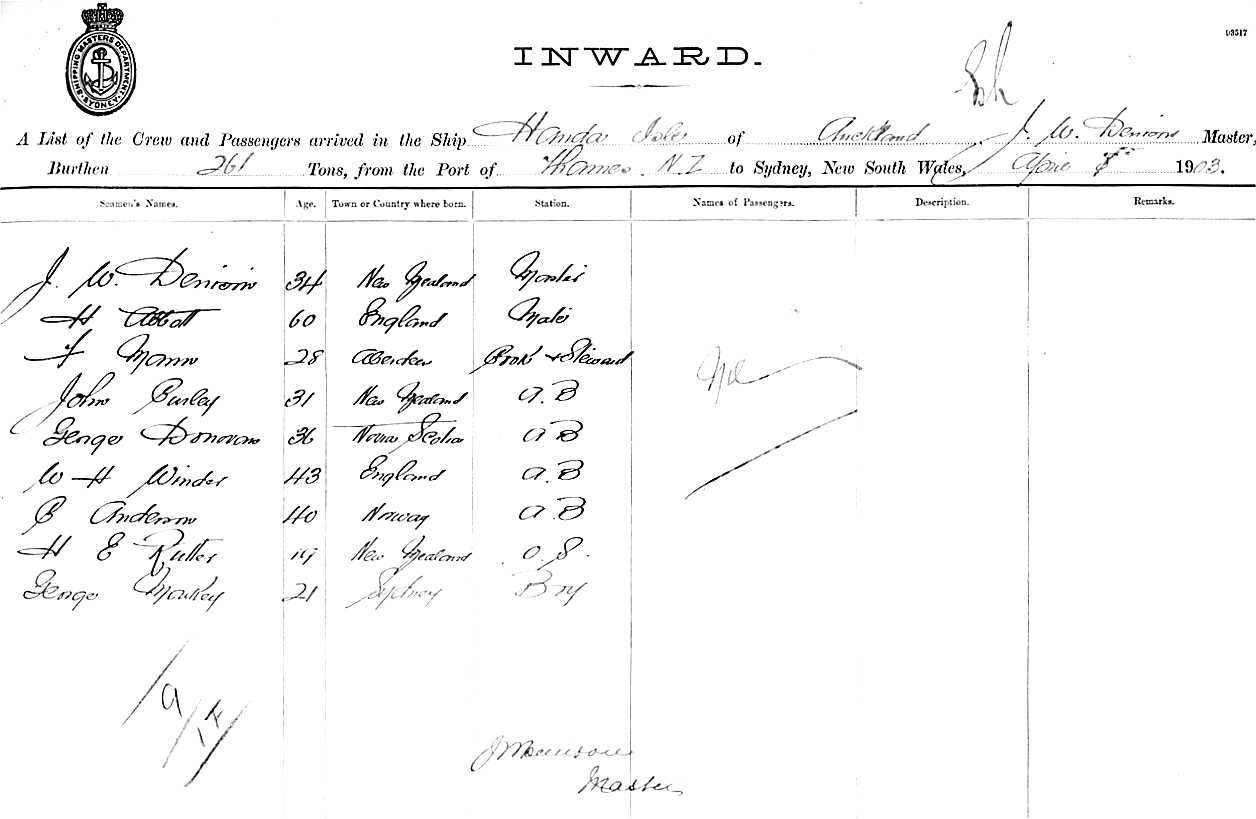 SHIPPING MASTERS DEPARTMENT SYDNEY
03517
INWARD.
A List of the Crew and Passengers arrived in the Ship Handa Isle of Auckland J. W. Denison Master,
Burthen 261 Tons, from the Port of Thames N.Z to Sydney, New South Wales, April 1903.
Seamen's Names. Age. Town or Country where born. Station. Names of Passengers. Description. Remarks.
J. W. Denison 34 New Zealand Master
H Abbott 60 England Mate
F Mann 28 Aberdeen Cook & Steward
John Curley 31 New Zealand A.B
George Donovan 36 Nova Scotia A B
W H Winder 43 England A.B
C Anderson 40 Norway A.B
H E Rutter 19 New Zealand O.S.
George 21 Sydney Boy
Nil
9
14
Master